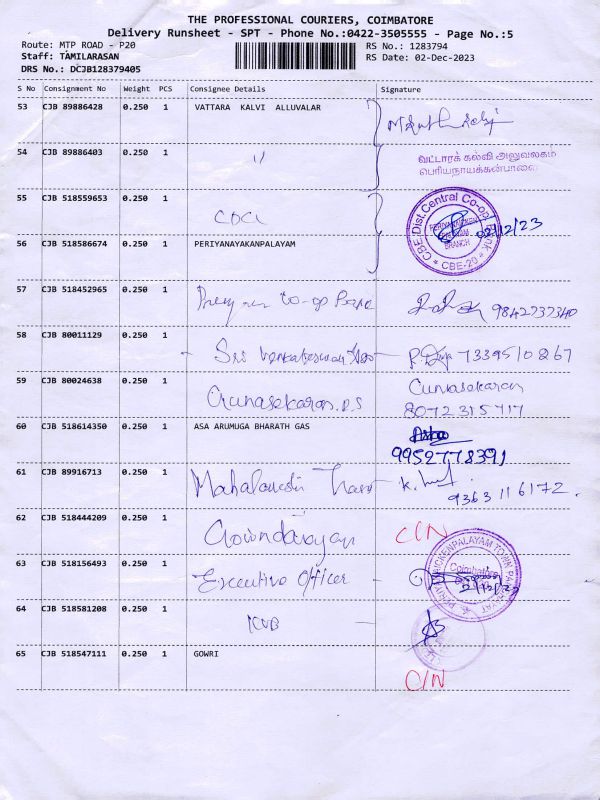 THE PROFESSIONAL COURIERS, COIMBATORE
Delivery Runsheet - SPT - Phone No.:0422-3505555 - Page No.:5
Route: MTP ROAD - P20
Staff: TAMILARASAN
DRS No.: DCJB128379405
RS No.: 1283794
RS Date: 02-Dec-2023
S No Consignment No Weight PCS Consignee Details Signature
53 CJB 89886428 0.250 1 VATTARA KALVI ALLUVALAR
54 CJB 89886403 0.250 1 "
வட்டாரக் கல்வி அலுவலகம்
பெரியநாயக்கன்பாளை
55 CJB 518559653 0.250 1
CBE.Dist.Central Co-op Bank
BRANCH
* CBE-20 *
02/12/23
56 CJB 518586674 0.250 1 PERIYANAYAKANPALAYAM
57 CJB 518452965 0.250 1 co-op 9842737340
58 CJB 80011129 0.250 1 Sri Venkateswara 7339510867
59 CJB 80024638 0.250 1 Gunasekaran.P.S Gunasekaran
8072315717
60 CJB 518614350 0.250 1 ASA ARUMUGA BHARATH GAS
9952778391
61 CJB 89916713 0.250 1 Mahalakshmi
9363116172.
62 CJB 518444209 0.250 1 Govindarajan C/N
63 CJB 518156493 0.250 1 Executive Officer
Coimbatore
2/12/23
64 CJB 518581208 0.250 1 KVB
65 CJB 518547111 0.250 1 GOWRI C/N